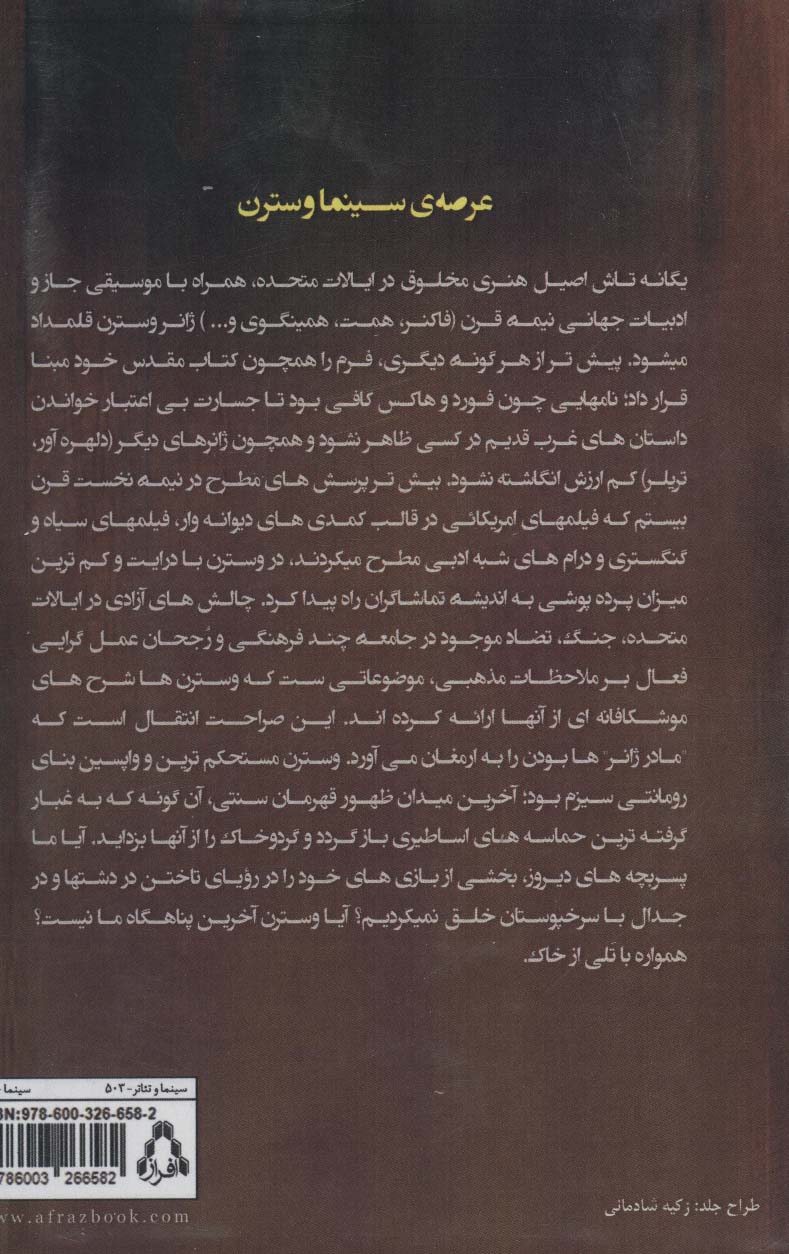 عرصه‌ی سینما وسترن
یگانه تاش اصیل هنری مخلوق در ایالات متحده، همراه با موسیقی جاز و
ادبیات جهانی نیمه قرن (فاکنر، همت، همینگوی و...) ژانر وسترن قلمداد
میشود. پیش تر از هر گونه دیگری، فرم را همچون کتاب مقدس خود مبنا
قرار داد؛ نامهایی چون فورد و هاکس کافی بود تا جسارت بی اعتبار خواندن
داستان های غرب قدیم در کسی ظاهر نشود و همچون ژانرهای دیگر (دلهره آور،
تریلر) کم ارزش انگاشته نشود. بیش تر پرسش های مطرح در نیمه نخست قرن
بیستم که فیلمهای امریکائی در قالب کمدی های دیوانه وار، فیلمهای سیاه و
گنگستری و درام های شبه ادبی مطرح میکردند، در وسترن با درایت و کم ترین
میزان پرده پوشی به اندیشه تماشاگران راه پیدا کرد. چالش های آزادی در ایالات
متحده، جنگ، تضاد موجود در جامعه چند فرهنگی و رُجحان عمل گرایی
فعال بر ملاحظات مذهبی، موضوعاتی ست که وسترن ها شرح های
موشکافانه ای از آنها ارائه کرده اند. این صراحت انتقال است که
"مادر ژانر" ها بودن را به ارمغان می آورد. وسترن مستحکم ترین و واپسین بنای
رومانتی سیزم بود؛ آخرین میدان ظهور قهرمان سنتی، آن گونه که به غبار
گرفته ترین حماسه های اساطیری باز گردد و گردوخاک را از آنها بزداید. آیا ما
پسربچه های دیروز، بخشی از بازی های خود را در رؤیای تاختن در دشتها و در
جدال با سرخپوستان خلق نمیکردیم؟ آیا وسترن آخرین پناهگاه ما نیست؟
همواره با تَلی از خاک.
سینما و تئاتر-۵۰۳ سینما
BN:978-600-326-658-2
افراز
786003 266582
www.afrazbook.com
طراح جلد: زکیه شادمانی